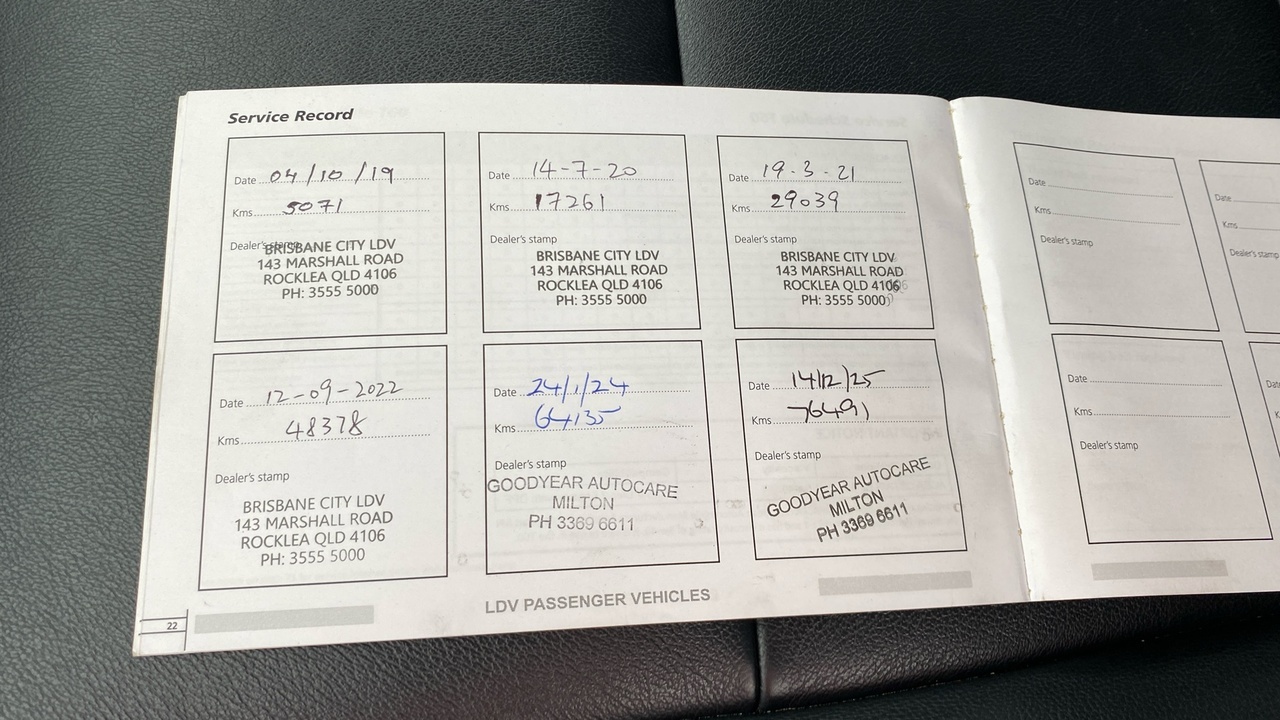 Service Record
Date 04/10/19
Kms 5071
Dealer's stamp
BRISBANE CITY LDV
143 MARSHALL ROAD
ROCKLEA QLD 4106
PH: 3555 5000
Date 14-7-20
Kms 17261
Dealer's stamp
BRISBANE CITY LDV
143 MARSHALL ROAD
ROCKLEA QLD 4106
PH: 3555 5000
Date 19-3-21
Kms 29039
Dealer's stamp
BRISBANE CITY LDV
143 MARSHALL ROAD
ROCKLEA QLD 4106
PH: 3555 5000
Date 12-09-2022
Kms 48378
Dealer's stamp
BRISBANE CITY LDV
143 MARSHALL ROAD
ROCKLEA QLD 4106
PH: 3555 5000
Date 24/1/24
Kms 64135
Dealer's stamp
GOODYEAR AUTOCARE
MILTON
PH 3369 6611
Date 14/12/25
Kms 76491
Dealer's stamp
GOODYEAR AUTOCARE
MILTON
PH 3369 6611
22
LDV PASSENGER VEHICLES
Date
Kms
Dealer's stamp
Date
Kms
Dealer's stamp
Date
Kms
Dealer's stamp
Date